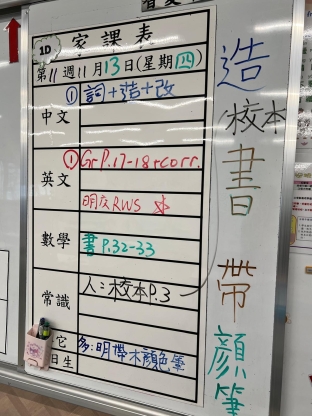 1D 家課表
第11週11月13日(星期四)
中文 ①詞+造+改
英文 ①Gr P.17-18+corr.
明交RWS
數學 書P.32-33
常識 人:校本P.3
它
日生 多:明帶木顏色筆
造
(校本
書
帶
顏
筆